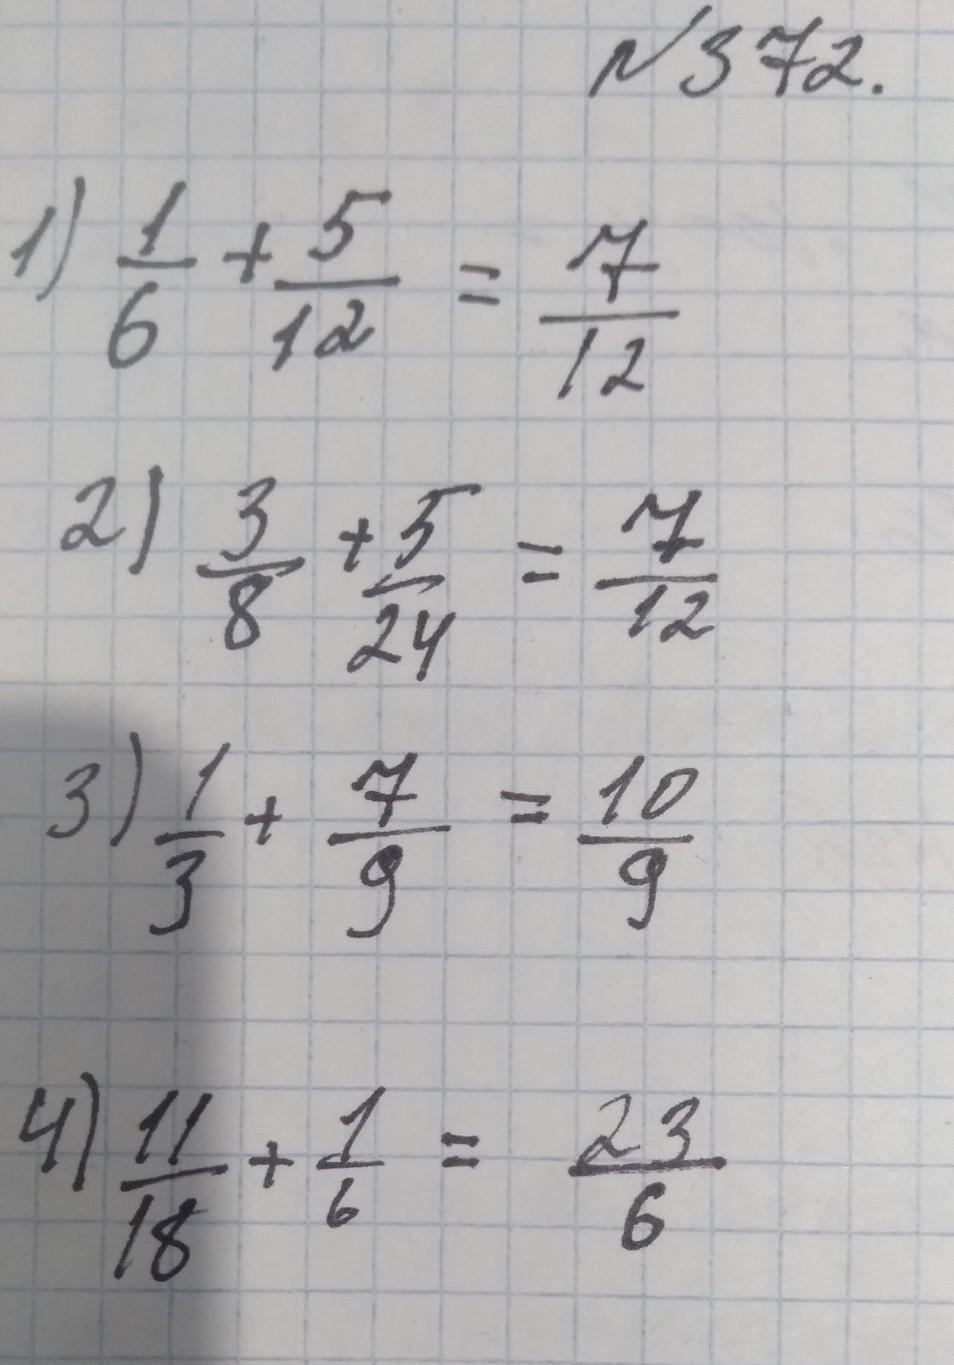 №372.
1) 1/6 + 5/12 = 7/12
2) 3/8 + 5/24 = 7/12
3) 1/3 + 7/9 = 10/9
4) 11/18 + 1/6 = 23/6